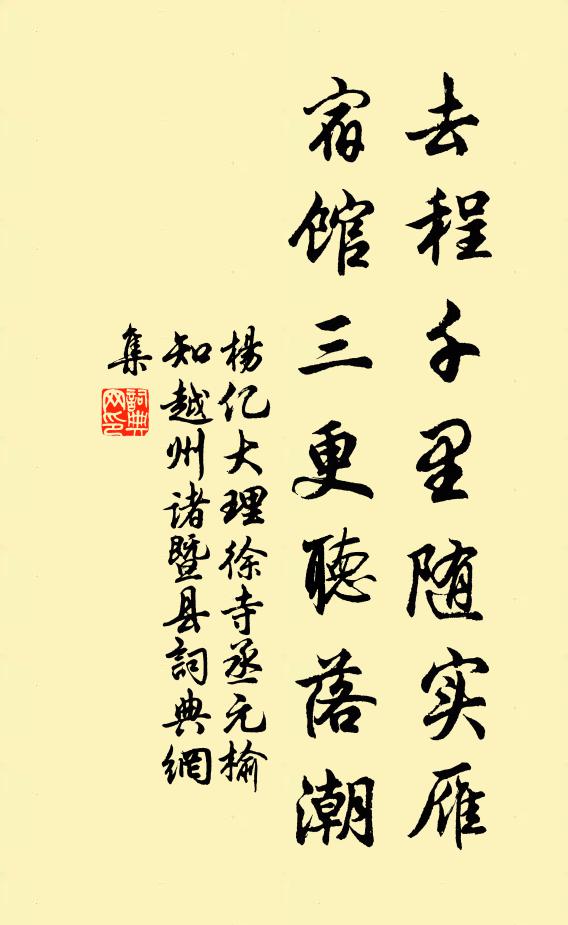 去程千里随实雁
宿馆三更聽落潮
楊亿大理徐寺丞元榆
知越州诸暨县詞典網
集
詞典
网印